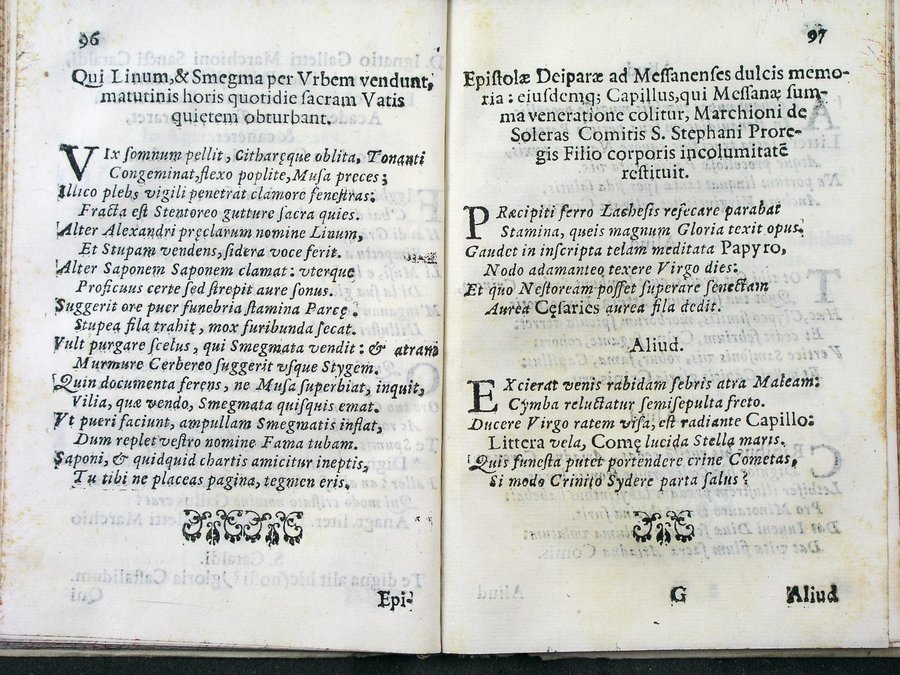 96
Qui Linum, & Smegma per Vrbem vendunt,
matutinis horis quotidie sacram Vatis
quiętem obturbant.
VIx somnum pellit, Citharęque oblita, Tonanti
Congeminat, flexo poplite, Musa pręces;
Illico plebs vigili penetrat clamore fenestras:
Fracta est Stentoreo gutture sacra quies.
Alter Alexandri pręclarum nomine Linum,
Et Stupam vendens, sidera voce ferit.
Alter Saponem Saponem clamat: vterque
Proficuus certe sed strepit aure sonus.
Suggerit ore puer funebria stamina Parcę:
Stupea fila trahit, mox furibunda secat.
Vult purgare scelus, qui Smegmata vendit: & atrano
Murmure Cerbereo suggerit vsque Stygem.
Quin documenta ferens, ne Musa superbiat, inquit,
Vilia, quæ vendo, Smegmata quisquis emat.
Vt pueri faciunt, ampullam Smegmatis inflat,
Dum replet vestro nomine Fama tubam.
Saponi, & quidquid chartis amicitur ineptis,
Tu tibi ne placeas pagina, tegmen eris.
Epi-
97
Epistolæ Deiparæ ad Messanenses dulcis memo-
ria: eiusdemq; Capillus, qui Messanæ sum-
ma veneratione colitur, Marchioni de
Soleras Comitis S. Stephani Prore-
gis Filio corporis incolumitatē
restituit.
PRæcipiti ferro Lachesis resecare parabat
Stamina, queis magnum Gloria texit opus.
Gaudet in inscripta telam meditata Papyro,
Nodo adamanteo texere Virgo dies:
Et quo Nestoream posset superare senectam
Aurea Cęsaries aurea fila dedit.
Aliud.
EXcierat venis rabidam febris atra Maleam:
Cymba reluctatur semisepulta freto.
Ducere Virgo ratem visa, est radiante Capillo:
Littera vela, Comę lucida Stella maris.
Quis funesta putet portendere crine Cometas,
Si modo Crinito Sydere parta salus?
G
Aliud